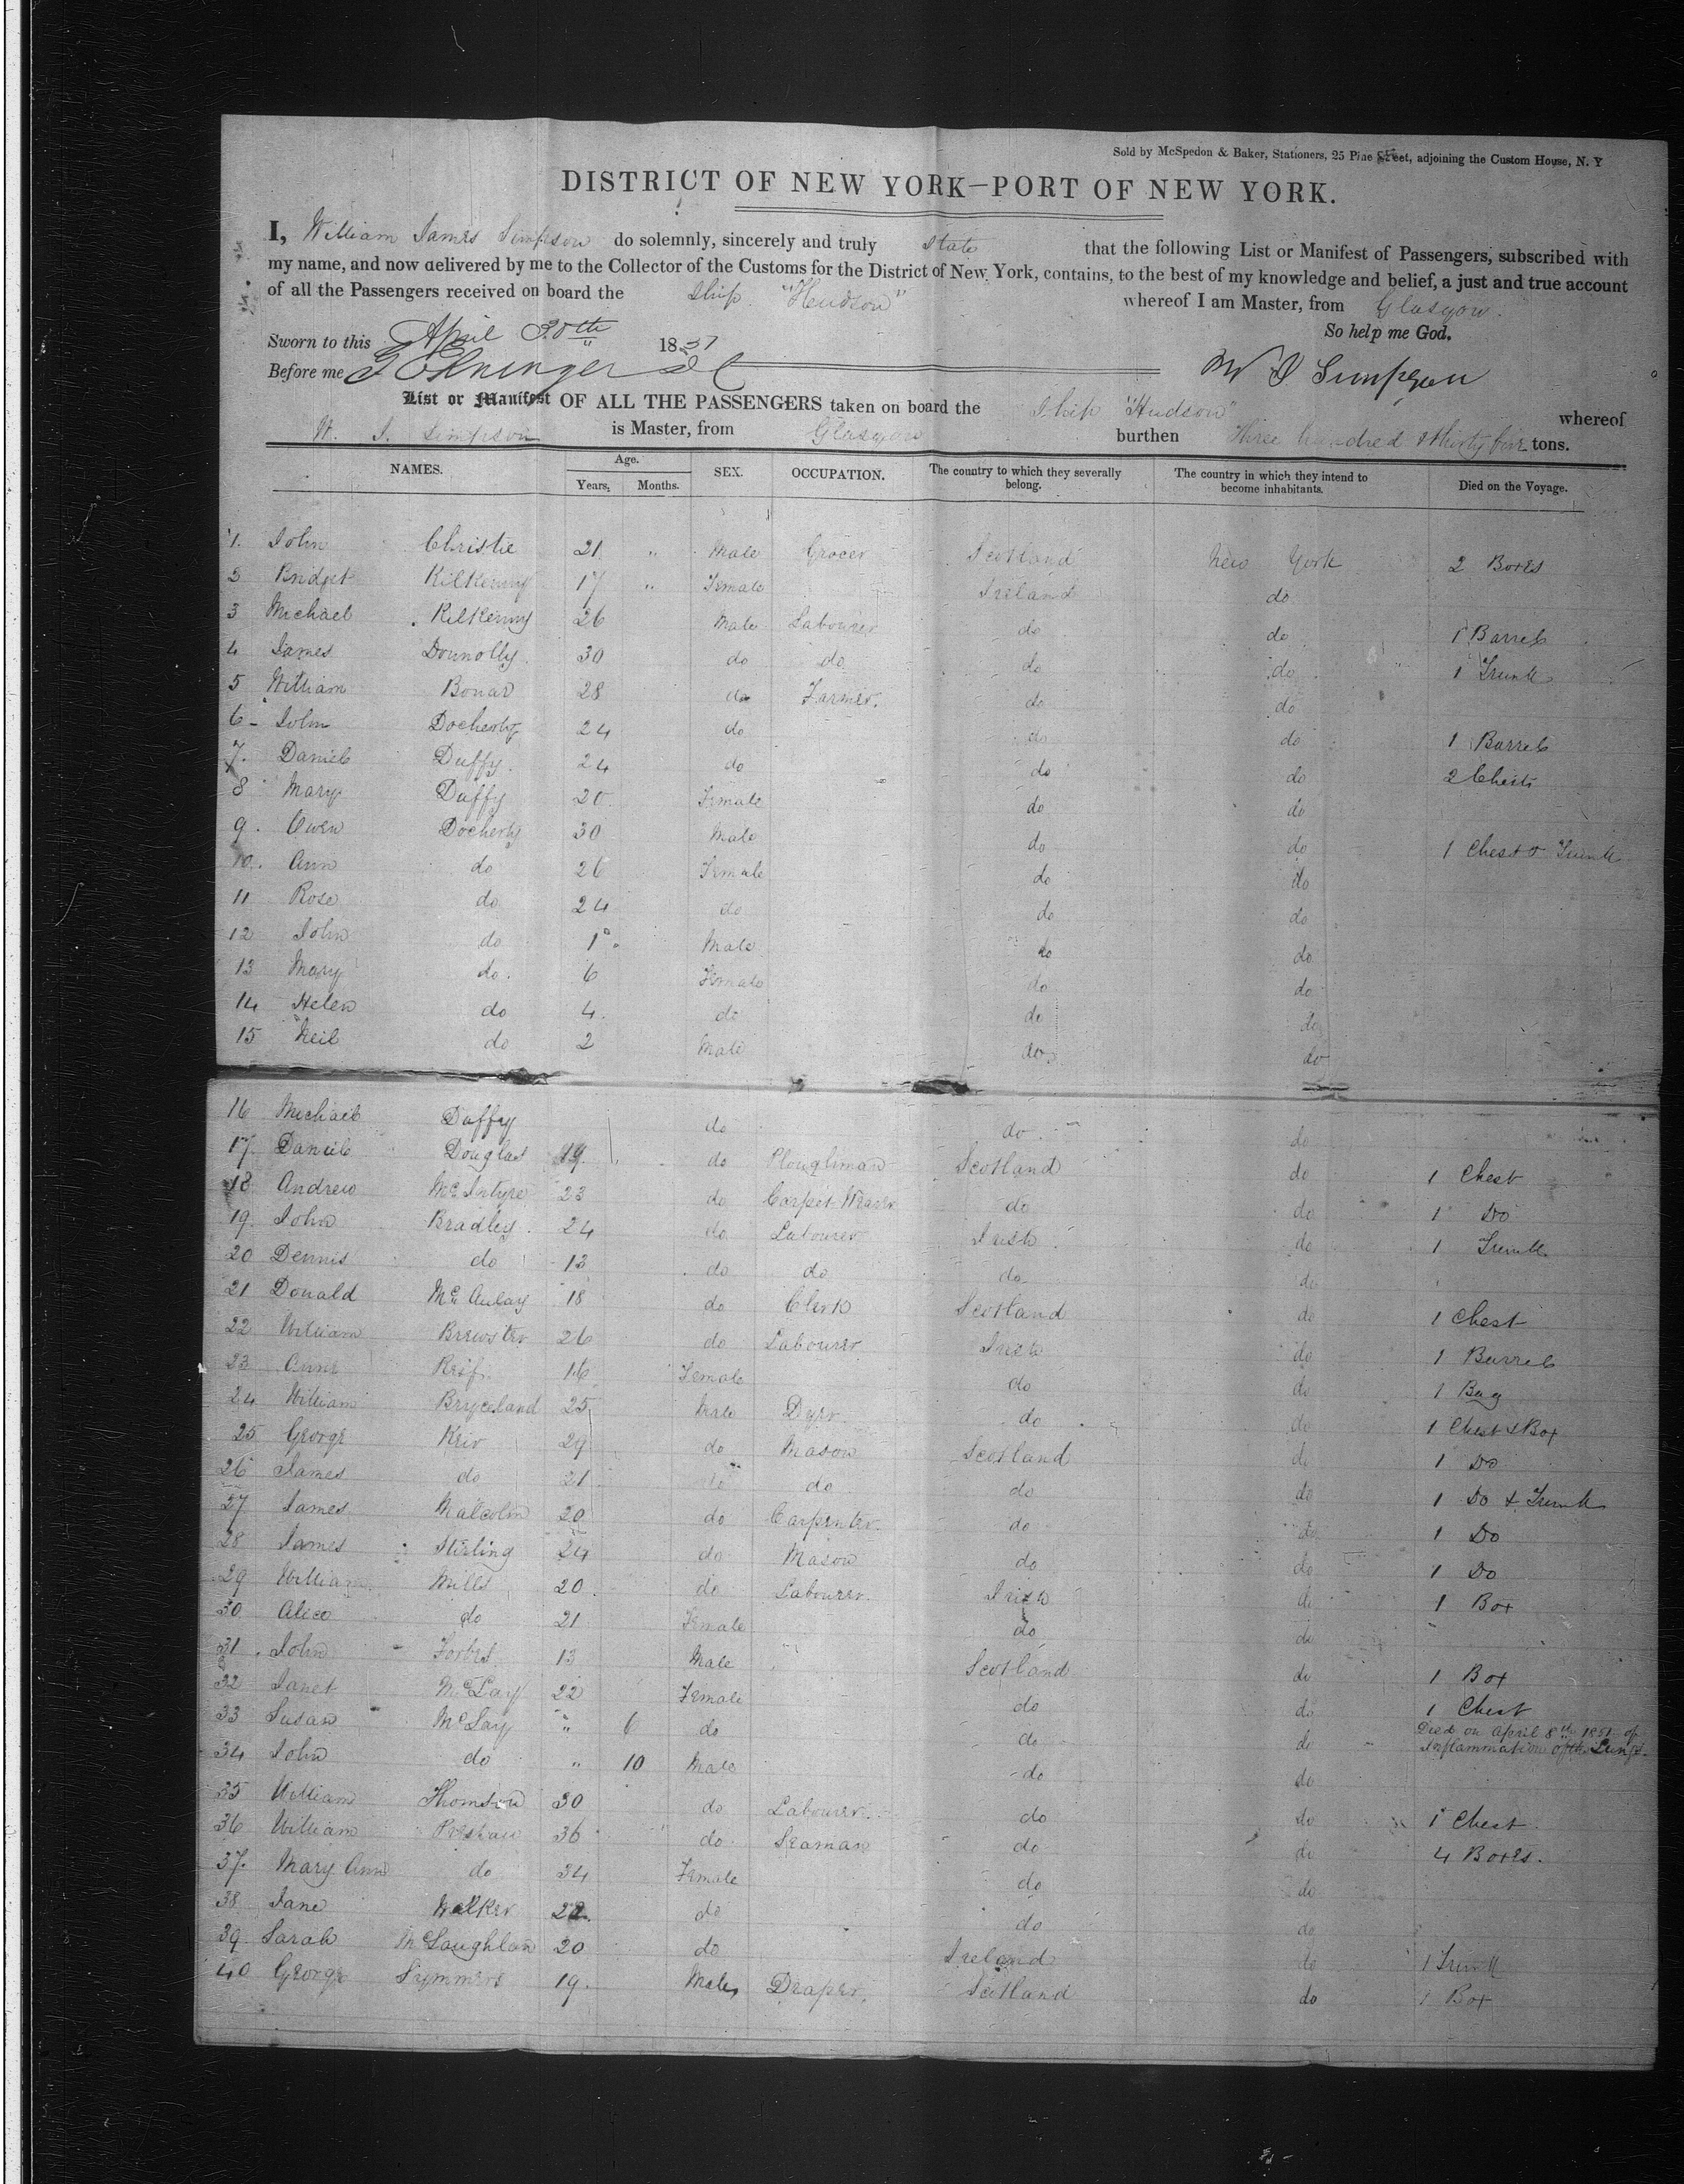 Sold by McSpedon & Baker, Stationers, 25 Pine Street, adjoining the Custom House, N. Y
DISTRICT OF NEW YORK—PORT OF NEW YORK.
I, William James Simpson do solemnly, sincerely and truly state that the following List or Manifest of Passengers, subscribed with
my name, and now delivered by me to the Collector of the Customs for the District of New York, contains, to the best of my knowledge and belief, a just and true account
of all the Passengers received on board the Ship "Hudson" whereof I am Master, from Glasgow.
So help me God.
Sworn to this April 30th 1851
Before me W J Simpson
List or Manifest OF ALL THE PASSENGERS taken on board the Ship "Hudson" whereof
W. J. Simpson is Master, from Glasgow burthen Three hundred & thirty five tons.
NAMES. Age. Years. Months. SEX. OCCUPATION. The country to which they severally belong. The country in which they intend to become inhabitants. Died on the Voyage.
1. John Christie 21 " Male Grocer Scotland New York 2 Boxes
2 Bridget Kilkenny 17 " Female Ireland do
3 Michael Kilkenny 26 Male Labourer do do 1 Barrel
4 James Donnolly. 30 do do do do 1 Trunk
5 William Bonar 28 do Farmer. do do
6 John Docherty 24 do do do 1 Barrel
7. Daniel Duffy. 24 do do do 2 Chests
8 Mary Duffy 20 Female do do
9. Owen Docherty 30 Male do do 1 Chest & Trunk
10. Ann do 26 Female do do
11 Rose do 24 do do do
12 John do 1 Male do do
13 Mary do. 6 Female do do
14 Helen do 4. do do do
15 Neil do 2 Male do do
16 Michael Duffy do do do
17. Daniel Douglas 19 do Ploughman Scotland do 1 Chest
18 Andrew McIntyre 23 do Carpet Weaver do do 1 Do
19. John Bradley. 24 do Labourer Irish do 1 Trunk
20 Dennis do 13 do do do do
21 Donald McAulay 18 do Clerk Scotland do 1 Chest
22 William Brewster 26 do Labourer Irish do 1 Barrel
23 Anne 16 Female do do 1 Bag
24 William Bryceland 25 Male Dyer do do 1 Chest & Box
25 George Keir 29 do Mason Scotland do 1 Do
26 James do 21 do do do do 1 Do & Trunk
27 James Malcolm 20 do Carpenter. do do 1 Do
28 James Stirling 24 do Mason do do 1 Do
29 William Mills 20 do Labourer. Irish do 1 Box
30 Alice do 21 Female do do
31. John Forbes 13 Male Scotland do 1 Box
32 Janet McLay 22 Female do do 1 Chest
33 Susan McLay " 6 do do do Died on April 8th 1851 of Inflammation of the Lungs.
34 John do " 10 Male do do
35 William Thomson 30 do Labourer. do do 1 Chest.
36 William 36 do Seaman do do 4 Boxes.
37. Mary Ann do 34 Female do do
38 Jane Walker 22 do do do
39 Sarah McLaughlan 20 do Ireland do 1 Trunk
40 George Symmers 19. Male Draper. Scotland do 1 Box